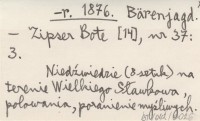 -r. 1876. Bärenjagd.
- Zipser Bote [14], nr 37:
3.
Niedźwiedzie (8 sztuk) na
terenie Wielkiego Sławkowa,
polowania, poranienie myśliwych.